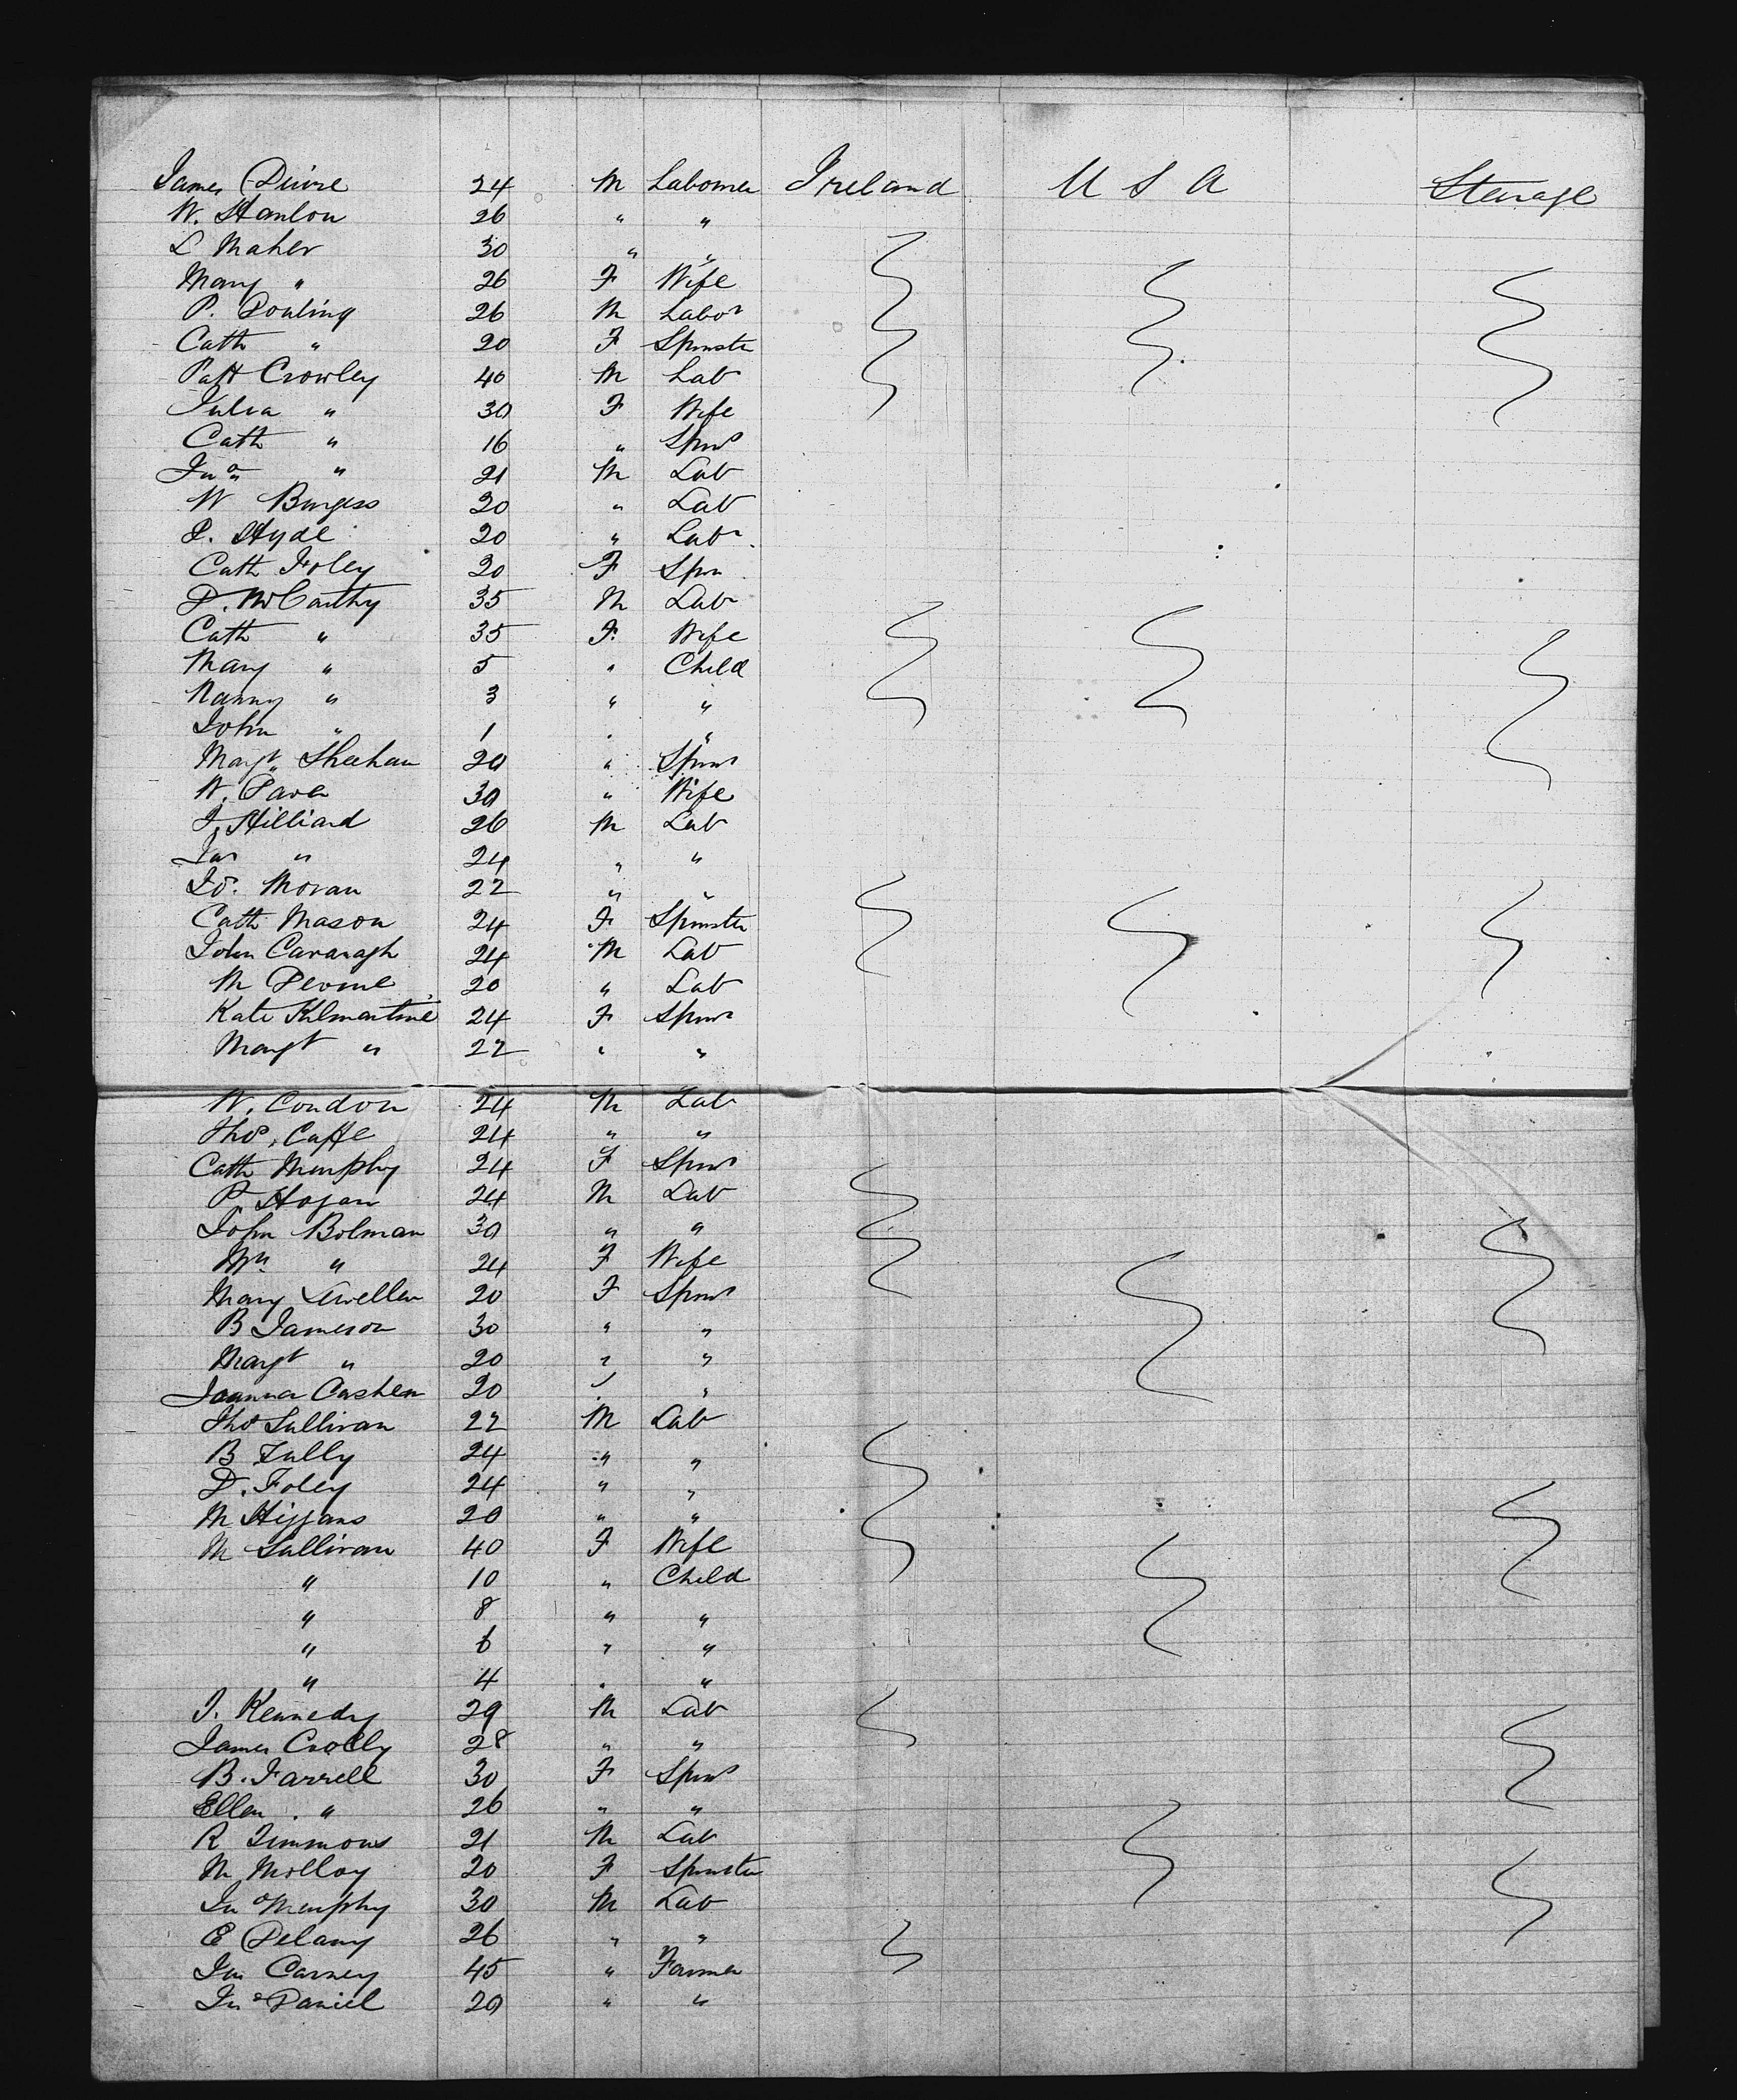 James Divire 24 M Labourer Ireland U S A Steerage
W. Hanlon 26 " "
L Maher 30 " "
Mary " 26 F Wife
P. Dowling 26 M Labor
Cath " 20 F Spinster
Patt Crowley 40 M Lab
Julia " 30 F Wife
Cath " 16 " Spinr
Jno " 21 M Lab
W Burgess 20 " Lab
P. Hyde 20 " Labr
Cath Foley 20 F Spin
D. McCarthy 35 M Lab
Cath " 35 F. Wife
Mary " 5 " Child
Nanny " 3 " "
John " 1 " "
Margt Sheehan 20 " Spinr
W. 30 " Wife
J. Hilliard 26 M Lab
Jas " 24 " "
Jo. Moran 22 " "
Cath Mason 24 F Spinster
John Cavanagh 24 M Lab
M 20 " Lab
Kate Kilmartine 24 F Spinr
Margt " 22 " "
W. Condon 24 M Lab
Thos. Caffe 24 " "
Cath Murphy 24 F Spinr
P. Hogan 24 M Lab
John Bolman 30 " "
Mrs " 24 F Wife
Mary Lewellen 20 F Spinr
B Jameson 30 " "
Margt " 20 " "
Joanna Cashen 20 " "
Thos Sullivan 22 M Lab
B Tully 24 " "
D. Foley 24 " "
M Higgans 20 " "
M Sullivan 40 F Wife
" 10 " Child
" 8 " "
" 6 " "
" 4 " "
J. Kennedy 29 M Lab
James Crolly 28 " "
B. Farrell 30 F Spinr
Ellen . " 26 " "
R Timmons 21 M Lab
M Molloy 20 F Spinster
Jno Murphy 30 M Lab
E Delany 26 " "
Jno Carney 45 " Farmer
Jno Daniel 20 " "